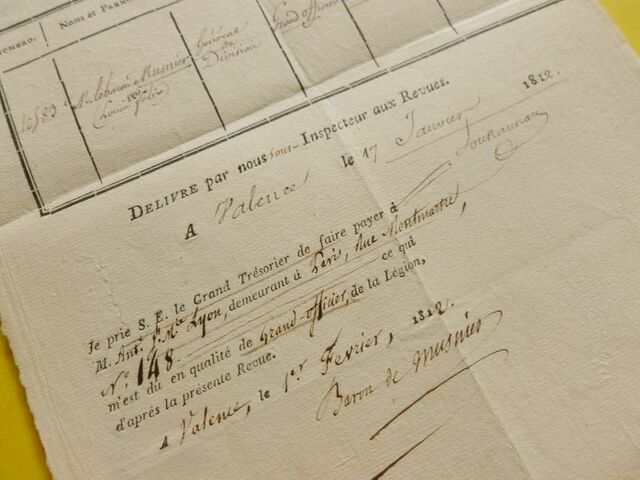 NUMÉRO.
NOMS ET PRÉN
Grand officier
10,583
Mr. le baron Musnier
Louis félix
Général
de
Division
DELIVRE par nous sous-Inspecteur aux Revues.
A Valence le 17 Janvier 1812.
Je prie S. E. le Grand Trésorier de faire payer à
M. Ant.e J. Mie Lyon, demeurant à Paris, Rue Montmartre,
N.o 148. ce qui
m'est dû en qualité de Grand-officier, de la Légion,
d'après la présente Revue.
A Valence, le 1er Fevrier, 1812.
Baron de Musnier